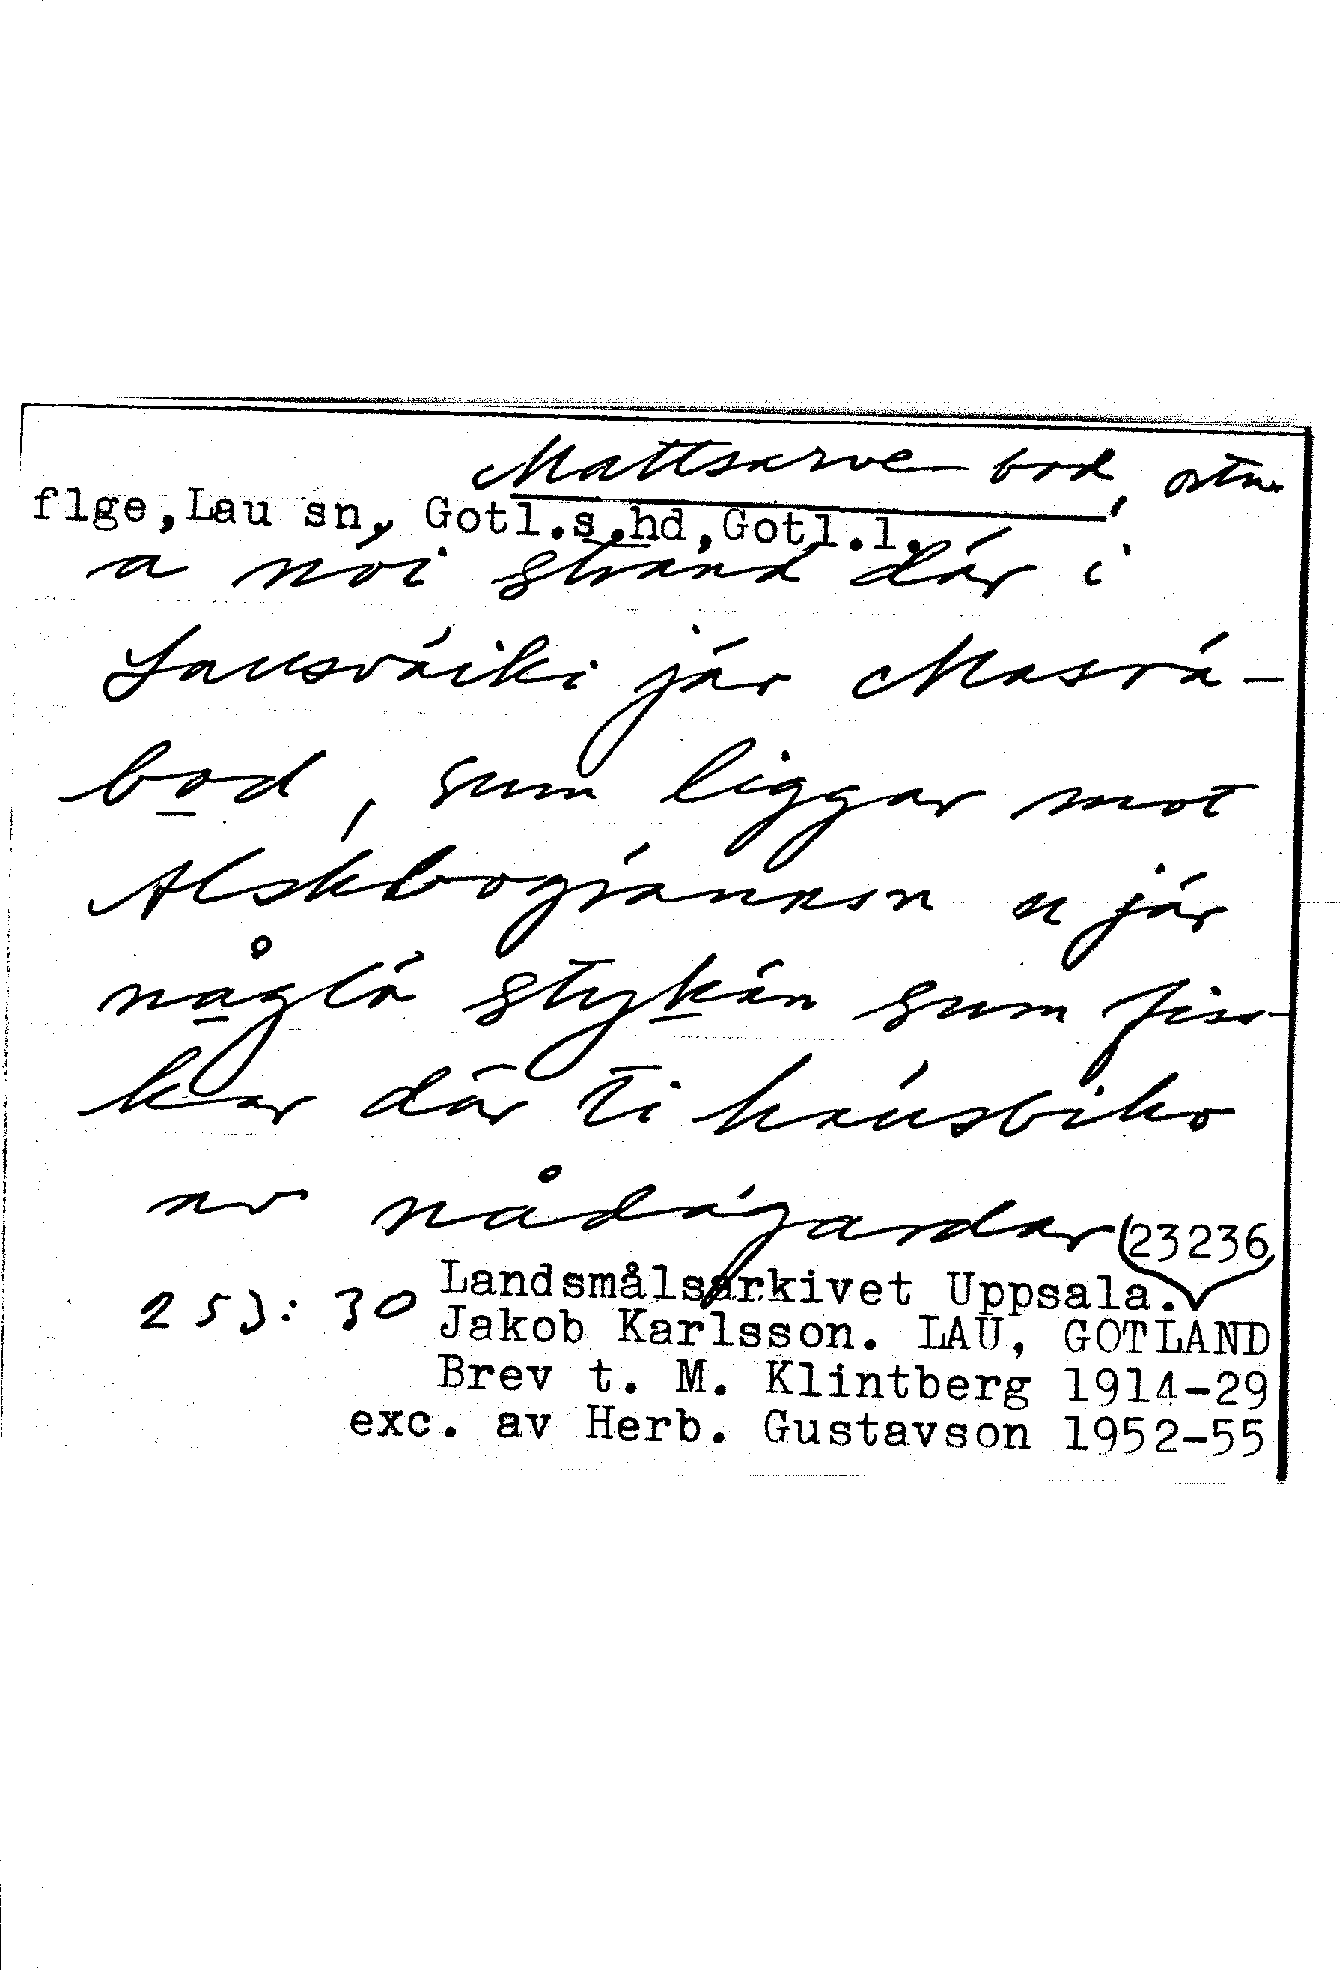 Mattsarve bod, ortn.
flge, Lau sn, Gotl.s.hd, Gotl.l.
a nói strand dár i
Lausváiki jár Masrá-
bod, sum liggar mot
Alskbogránnsn u jár
någlá stykán sum fiss-
kar dár ti háusbiho
av nådágardar
23236
253:30
Landsmålsarkivet Uppsala.
Jakob Karlsson. LAU, GOTLAND
Brev t. M. Klintberg 1914-29
exc. av Herb. Gustavson 1952-55